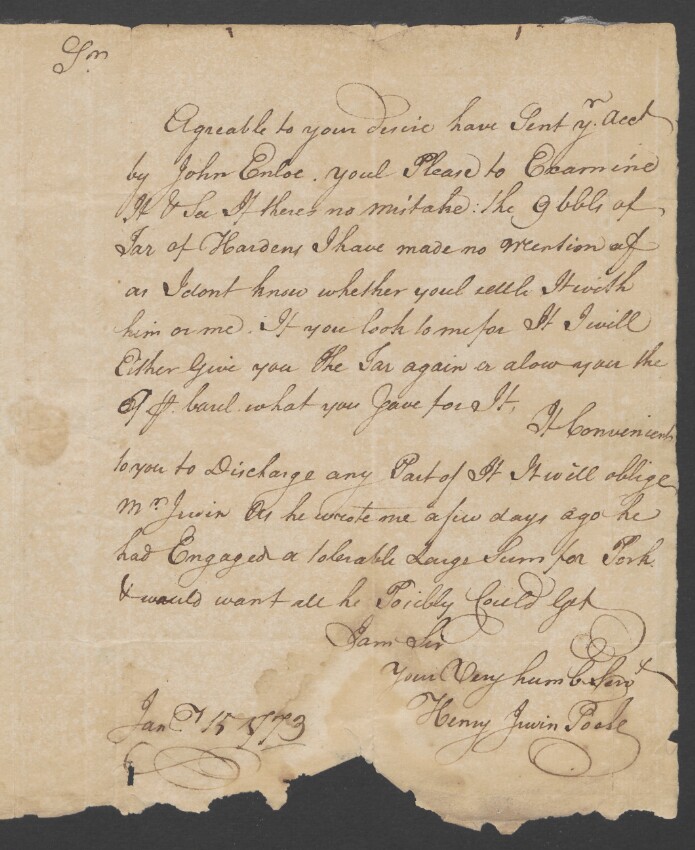 Sr
Agreable to your desire have Sent yr. Acct
by John Enloe. youl Please to Examine
It & See If theres no mistake: the 9 bbls of
Tar of Hardens I have made no mention of
as I dont know whether youl settle It with
him or me. If you look to me for It I will
Either Give you the Tar again or alow you the
barel what you Gave for It.
If Convenient
to you to Discharge any Part of It It will oblige
Mr. Irwin As he wrote me a few days ago he
had Engaged a tolerable Large Sum for Pork
& would want all he Posibly Could Get
I am Sir
Your Very humb. Servt
Jany 15 1773
Henry Irwin Toole